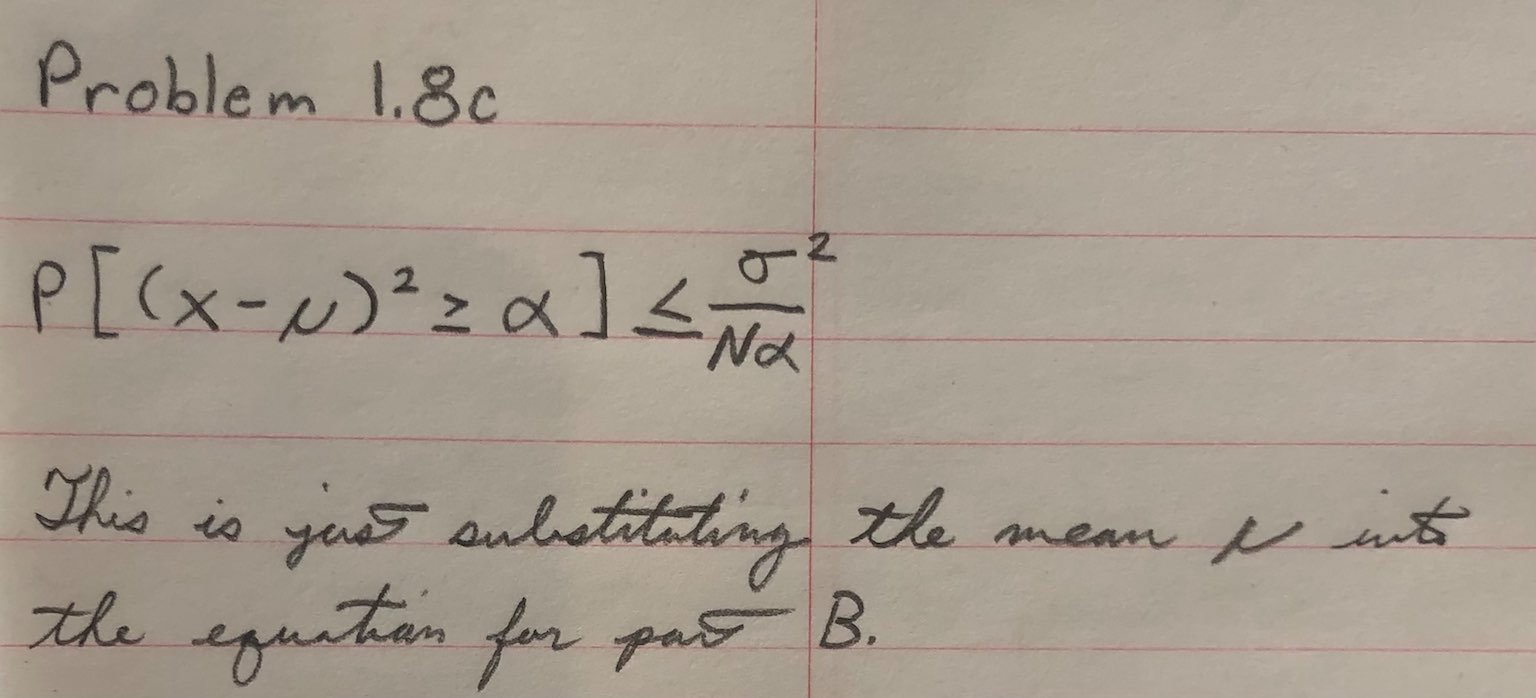 Problem 1.8c
P[(x-μ)² ≥ α] ≤ σ²/Nα
This is just substituting the mean μ into
the equation for part B.